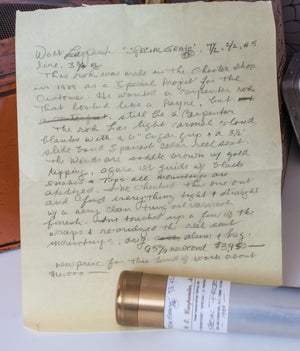 Walt Carpenter "Special Grade", 7½, 2/2, #5
line. 3 ¾ oz
This rod was made in the Chester Shop
in 1985 as a Special Project for the
Customer. He wanted a Carpenter rod
that looked like a Payne, but
still be a Carpenter.
The rod has light caramel colored
blanks with a 6" cigar grip & a 3½"
slide band Spanish cedar reel seat.
The Wends are saddle brown w/ gold
tipping, agate 1st guide w/ black
snakes & tops all mountings are
oxidized. I've checked this one out
and find everything tight & straight
w/ a very clean & tiny out varnish
finish. I've touched up a few of the
wraps & re-oxidized the reel seat
mountings, orig alum & bag.
95% + second $3,950 —
new price for this kind of work about
$6,000 —